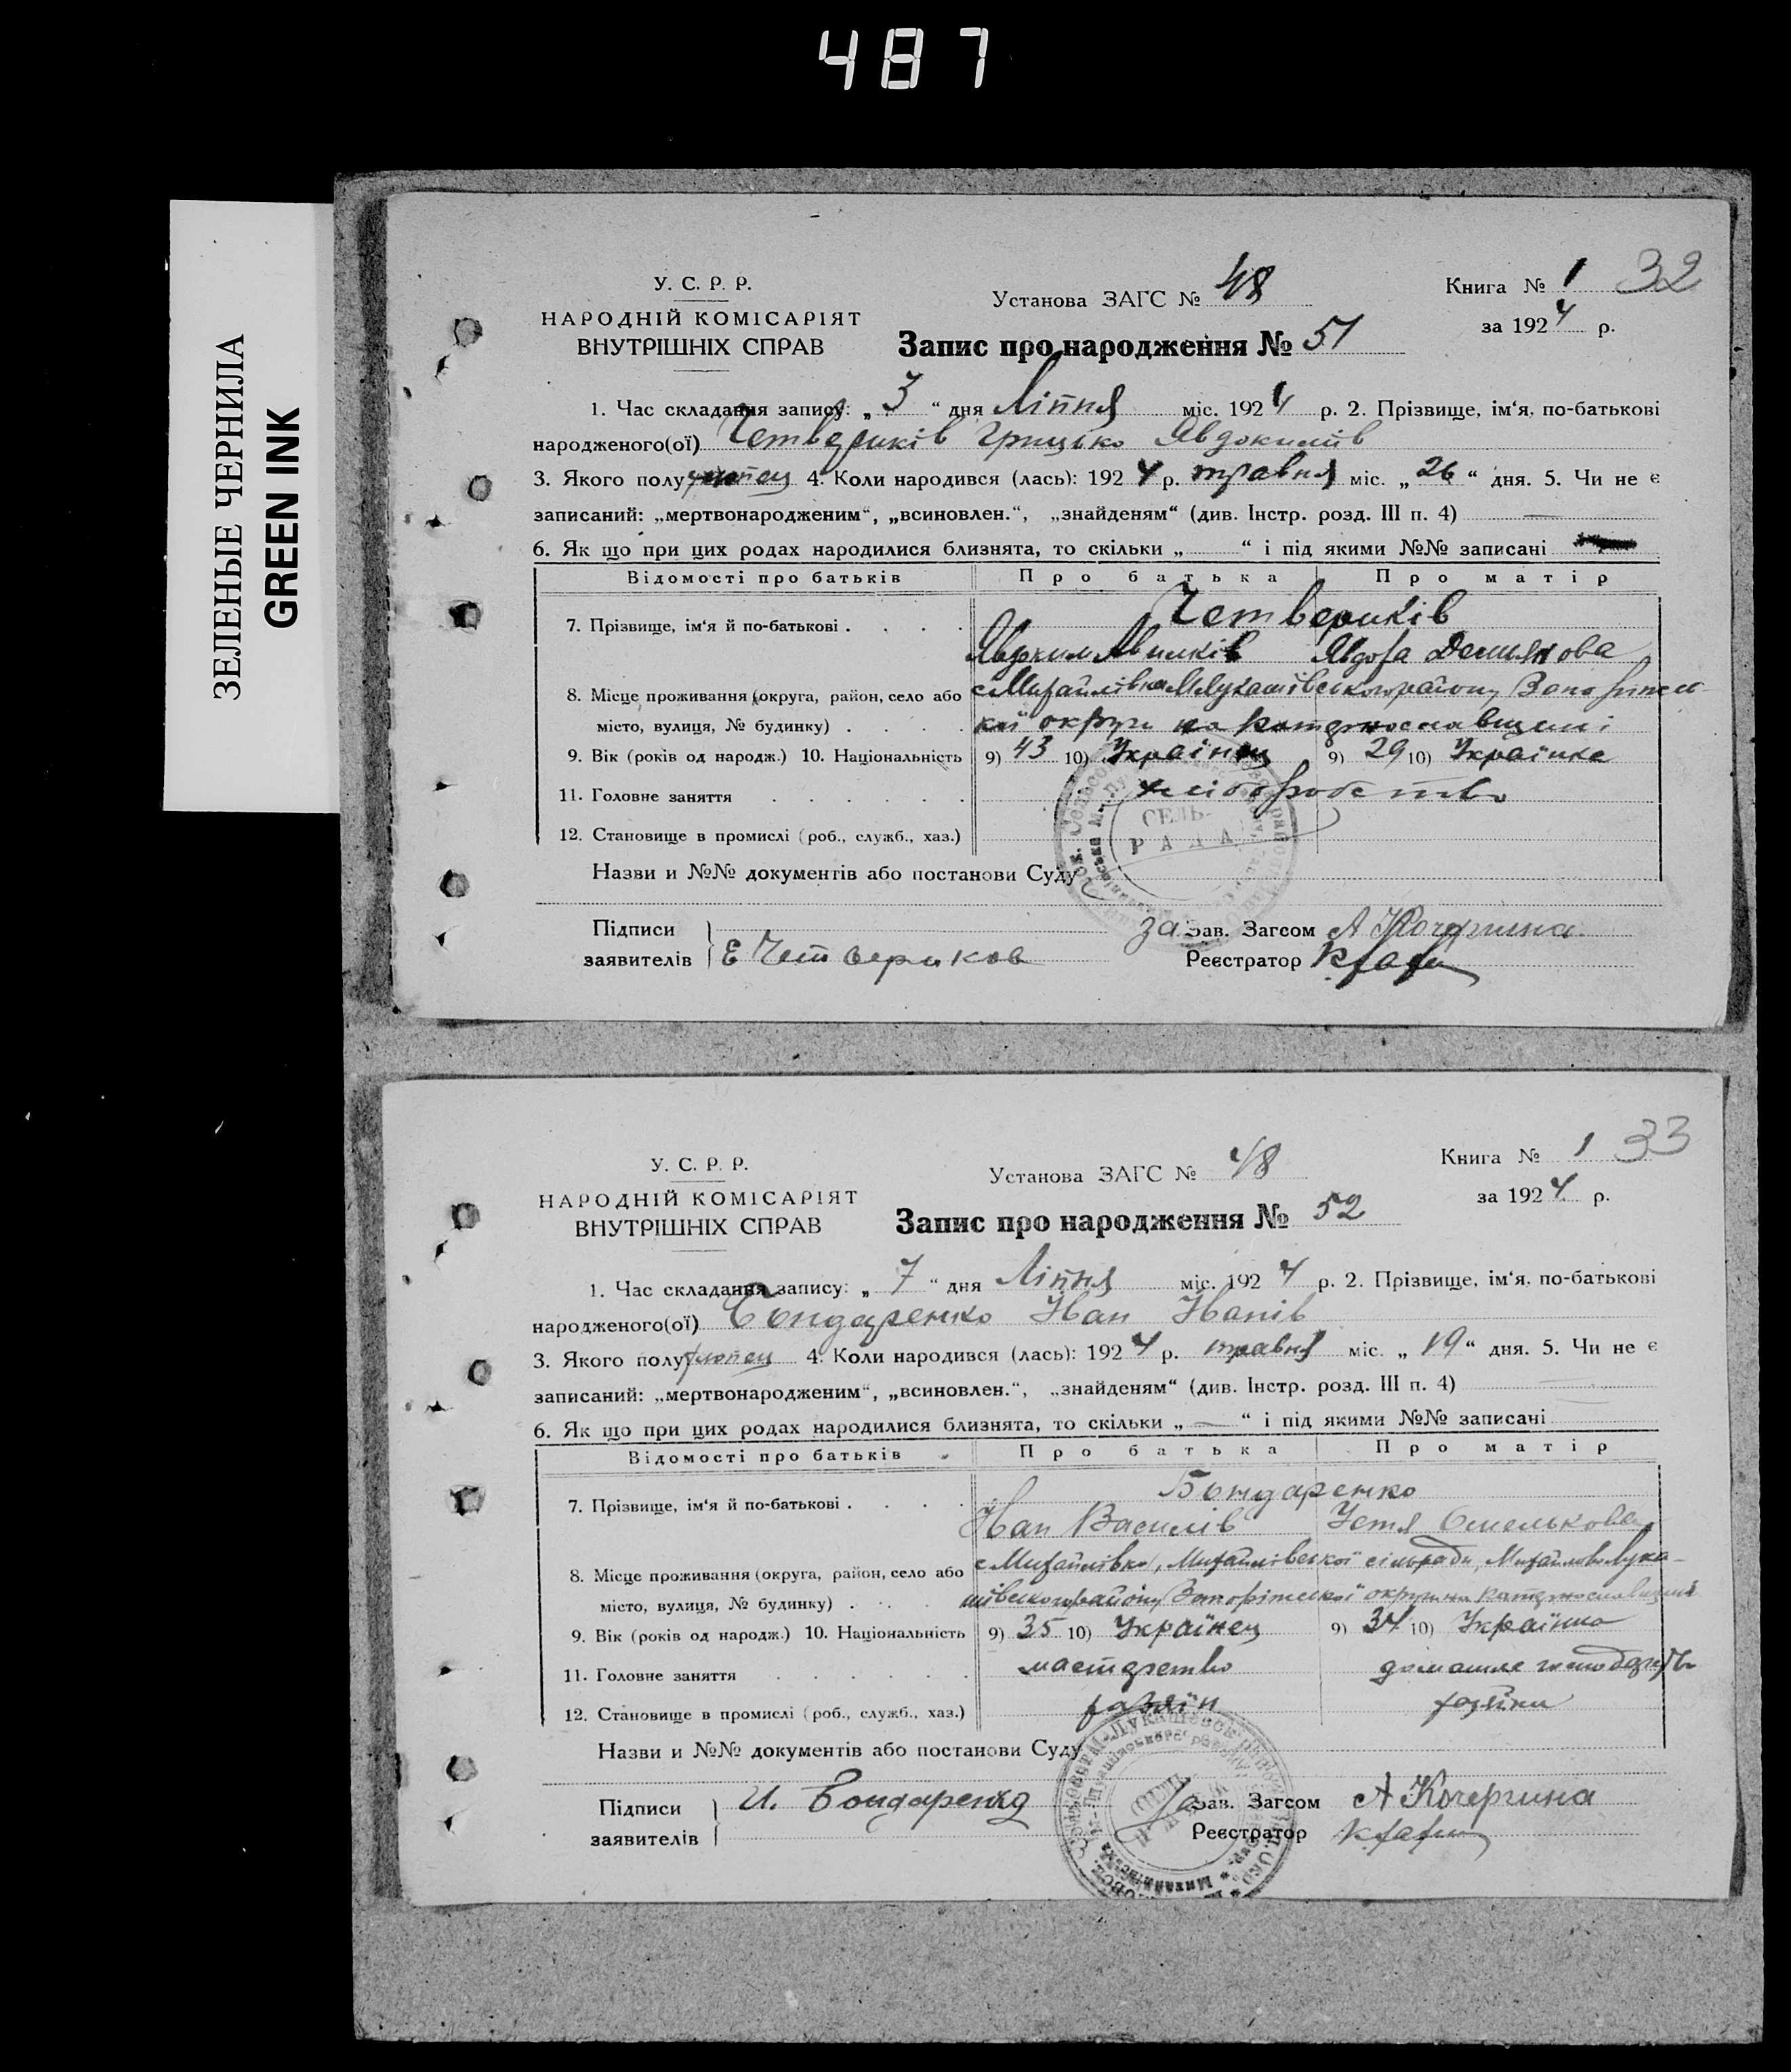 487
ЗЕЛЕНЫЕ ЧЕРНИЛА
GREEN INK
У. С. Р. Р.
НАРОДНІЙ КОМІСАРІЯТ
ВНУТРІШНІХ СПРАВ
Установа ЗАГС № 48
Книга № 1 32
за 1924 р.
Запис про народження № 51
1. Час складання запису: „ 3 “ дня Ліпня міс. 1924 р. 2. Прізвище, ім‘я, по-батькові
народженого(ої) Четвериків Грицько Явдокимів
3. Якого полу хлопец 4. Коли народився (лась): 1924 р. травня міс. „ 26 “ дня. 5. Чи не є
записаний: „мертвонародженим“, „всиновлен.“, „знайденям“ (див. Інстр. розд. III п. 4) —
6. Як що при цих родах народилися близнята, то скільки „ “ і під якими №№ записані
Відомості про батьків Про батька Про матір
7. Прізвище, ім‘я й по-батькові . . . . Четвериків
Явдоха Демянова
8. Місце проживання (округа, район, село або с Михайлівка МЛукашівського району Запоріжсь-
місто, вулиця, № будинку) . . . . кої округи на Катеринославщині
9. Вік (років од народж.) 10. Національність 9) 43 10) Українец 9) 29 10) Українка
11. Головне заняття . . . . . . хліборобство
12. Становище в промислі (роб., служб., хаз.)
СЕЛЬ-
РАДА
Назви и №№ документів або постанови Суду
Підписи
заявителів Е Четвериков
за Зав. Загсом А Кочергина
Реєстратор
У. С. Р. Р.
НАРОДНІЙ КОМІСАРІЯТ
ВНУТРІШНІХ СПРАВ
Установа ЗАГС № 48
Книга № 1 33
за 1924 р.
Запис про народження № 52
1. Час складання запису: „ 7 “ дня Ліпня міс. 1924 р. 2. Прізвище, ім‘я, по-батькові
народженого(ої) Бондаренко Йван Йванів
3. Якого полу хлопец 4. Коли народився (лась): 1924 р. травня міс. „ 19 “ дня. 5. Чи не є
записаний: „мертвонародженим“, „всиновлен.“, „знайденям“ (див. Інстр. розд. III п. 4)
6. Як що при цих родах народилися близнята, то скільки „ — “ і під якими №№ записані
Відомості про батьків Про батька Про матір
7. Прізвище, ім‘я й по-батькові . . . . Бондаренко
Йван Василів Устя Омелькова
8. Місце проживання (округа, район, село або с Михайлівка, Михайлівської сільради, Михайлово Лука-
місто, вулиця, № будинку) . . . шівського району Запоріжської округи на Катеринославщині
9. Вік (років од народж.) 10. Національність 9) 35 10) Українец 9) 34 10) Українка
11. Головне заняття . . . . . . мастерство домашне господарство
12. Становище в промислі (роб., служб., хаз.) хазяїн хазяйка
Назви и №№ документів або постанови Суду
Підписи
заявителів И. Бондаренко
За Зав. Загсом А Кочергина
Реєстратор